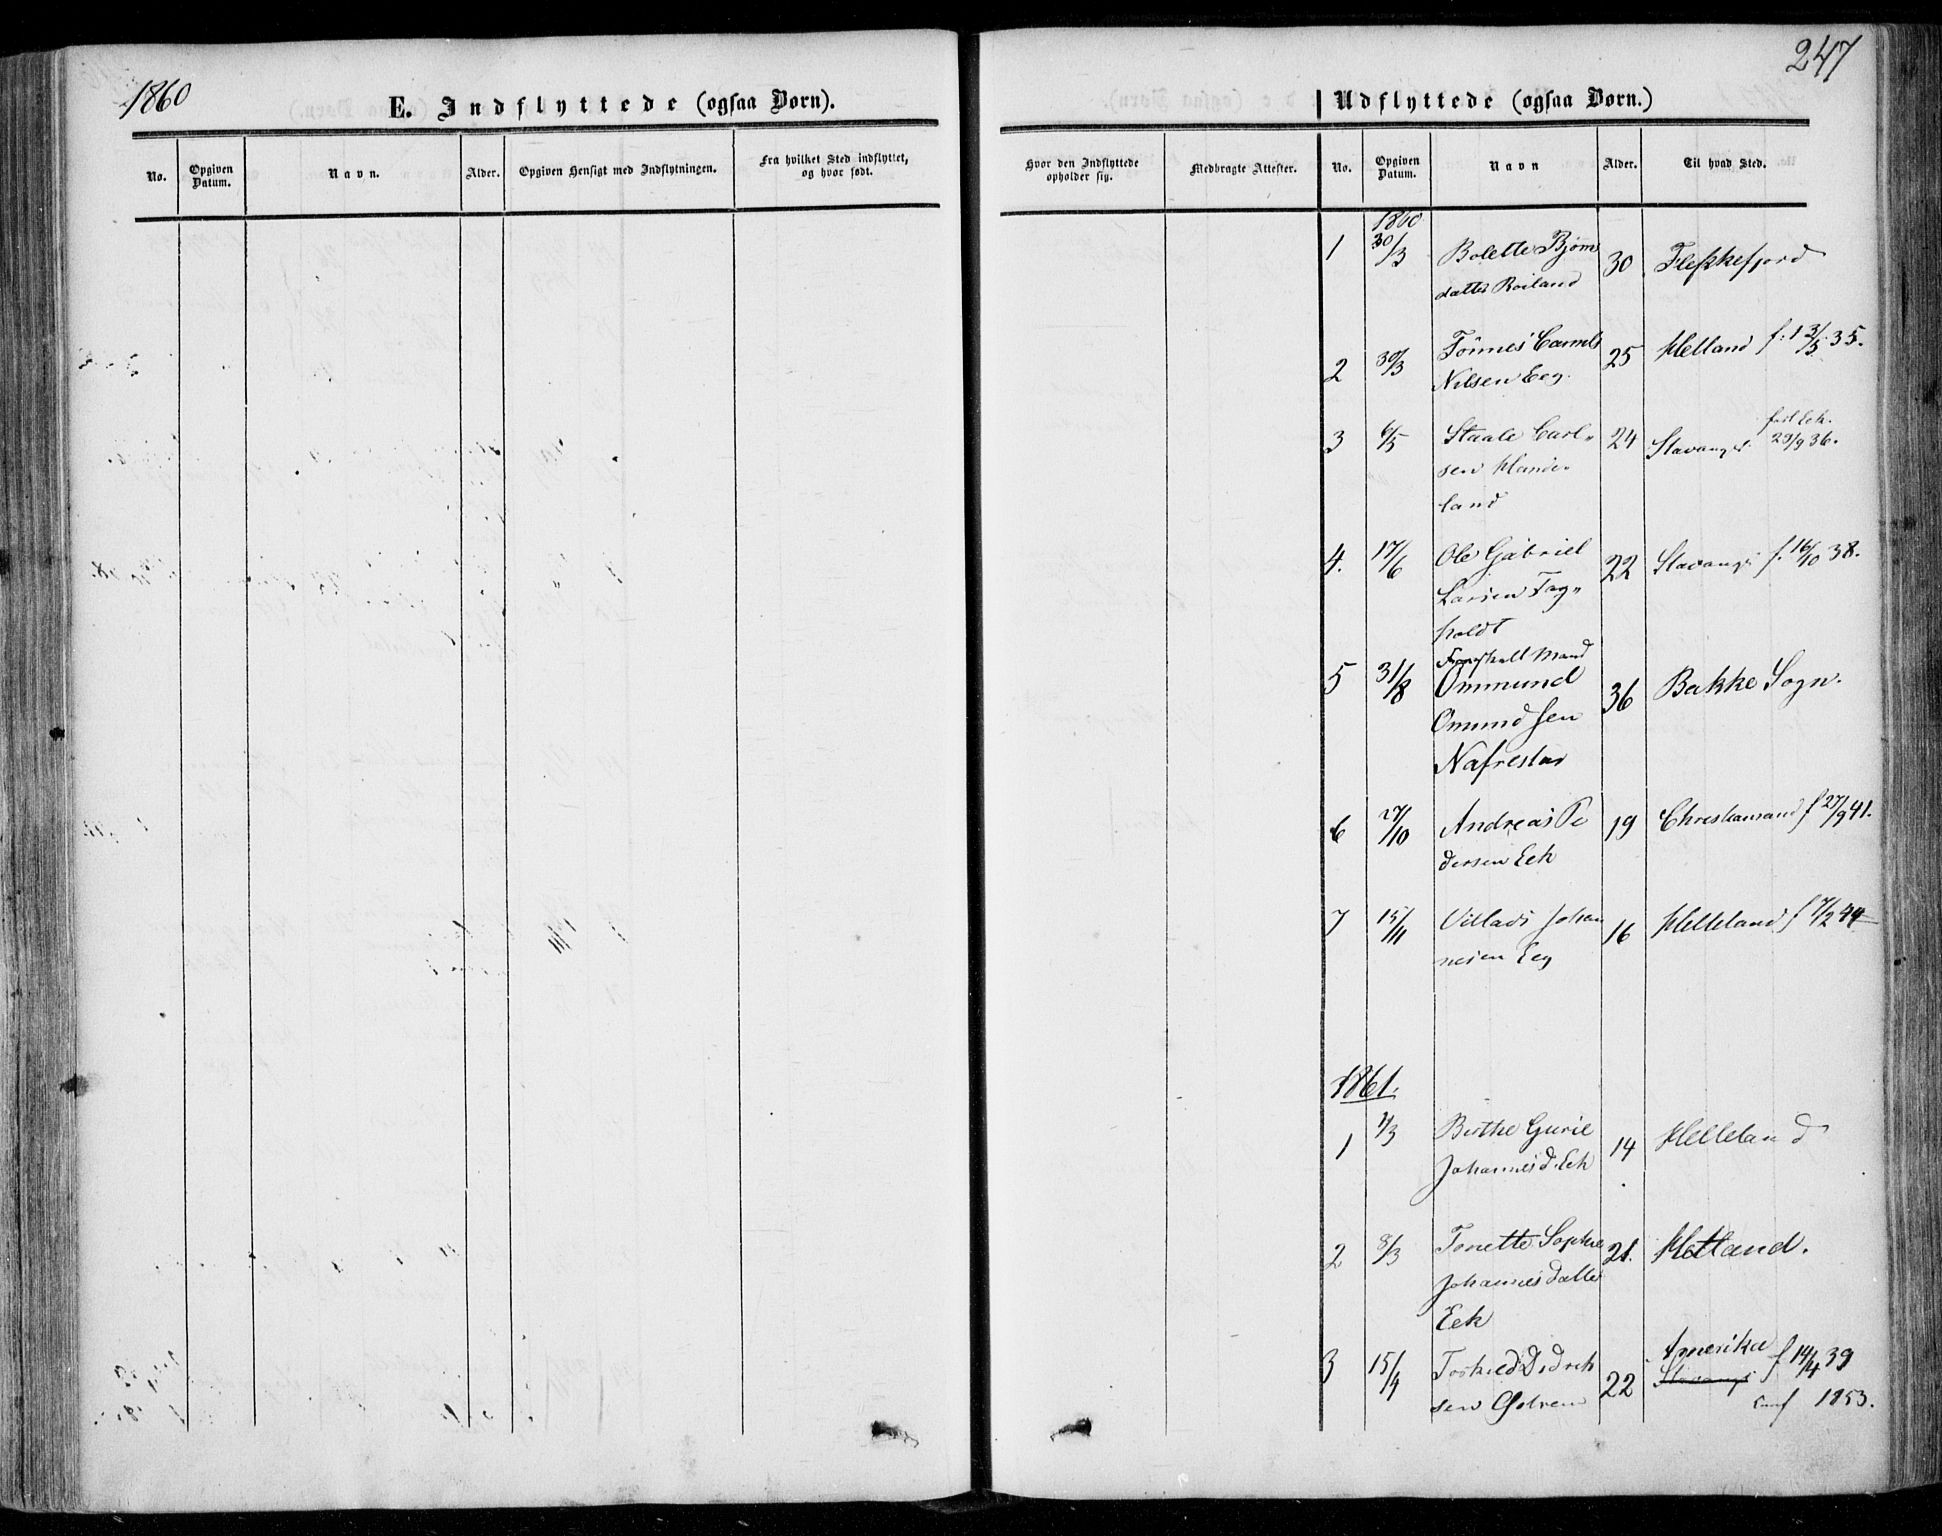 1860
E. Indflyttede (ogsaa Børn).
No.
Opgiven Datum.
Navn.
Alder.
Opgiven Hensigt med Indflytningen.
Fra hvilket Sted indflyttet, og hvor født.
247
Udflyttede (ogsaa Børn.)
Hvor den Indflyttede opholder sig.
Medbragte Attester.
No.
Opgiven Datum.
Navn
Alder.
Til hvad Sted.
1860
1 30/3 Bolette Bjørns 30 Flekkefjord
datter Roiland
2 30/3 Tönnes 25 Hetland f. 13/5 35.
Nilsen Eeg.
3 6/5 Staale Carl„ 24 Stavanger Eek.
29/9 36.
sen Hande
land
4. 17/6 Ole Gabriel 22 Stavanger f. 16/10 38.
Larsen Fag„
holdt
Mand
5 31/8 Ommund 36 Bakke Sogn.
Omundsen
Nafrestad
6 27/10 Andreas Pe 19 Christiansand f 27/9 41.
dersen Eek
7 15/11 Villads Johan 16 Helleland f 7/2 44
nesen Eeg
1861.
1 1/3 Berthe Gurie 14 Helleland
Johannesd. Eek
2 8/3 Tonette Sophie 21. Hetland.
Johannesdatter
Eek
3 15/4 Torkild Didrik 22 Amerika f 14/4 39
Stavanger
sen
conf 1853.